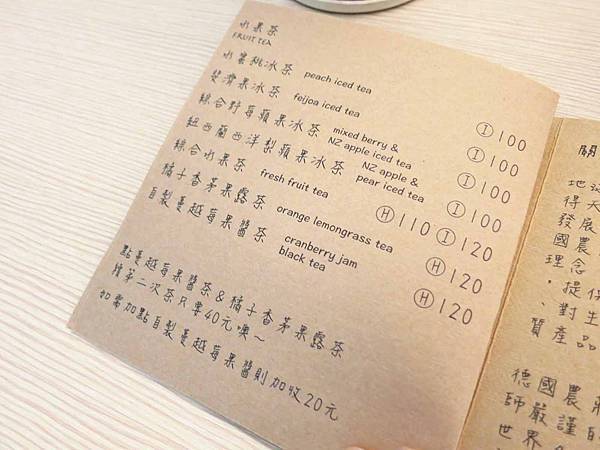 水果茶
FRUIT TEA
水蜜桃冰茶 peach iced tea Ⓘ 100
斐濟果冰茶 feijoa iced tea Ⓘ 100
綜合野莓蘋果冰茶 mixed berry & NZ apple iced tea Ⓘ 100
紐西蘭西洋梨蘋果冰茶 NZ apple & pear iced tea Ⓘ 100
綜合水果茶 fresh fruit tea Ⓗ 110 Ⓘ 120
橘子香茅果露茶 orange lemongrass tea Ⓗ 120
自製蔓越莓果醬茶 cranberry jam black tea Ⓗ 120
點蔓越莓果醬茶&橘子香茅果露茶
續第二次茶只要40元噢~
如需加點自製蔓越莓果醬則加收20元
關
地
得天
發展
國農
理念
，提供
、對生
質產品
德國農
師嚴謹自
世界